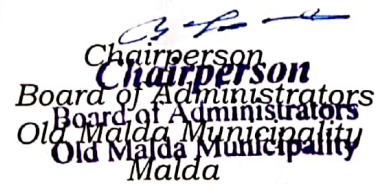 Chairperson
Chairperson
Board of Administrators
Board of Administrators
Old Malda Municipality
Old Malda Municipality
Malda